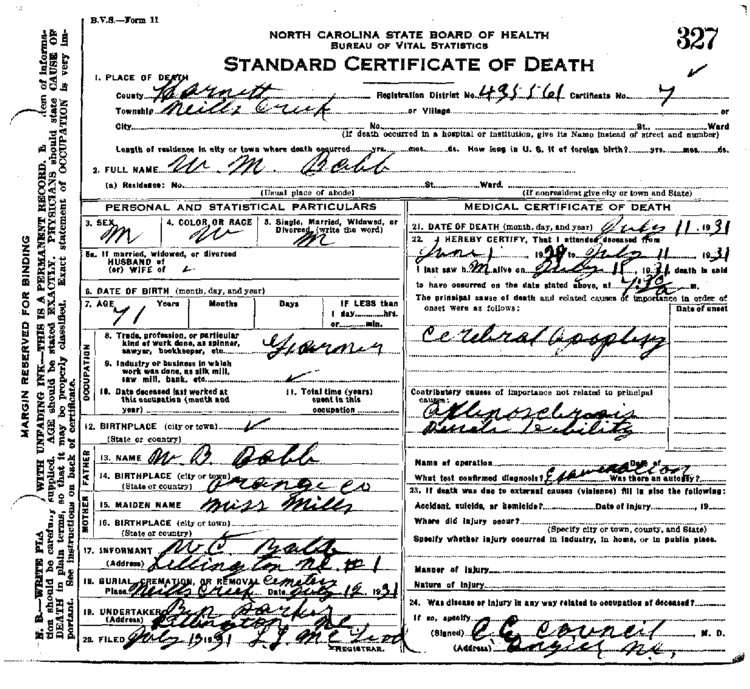 B.V.S.—Form 11
NORTH CAROLINA STATE BOARD OF HEALTH
BUREAU OF VITAL STATISTICS
STANDARD CERTIFICATE OF DEATH
327
1. PLACE OF DEATH
County Harnett Registration District No. 435-5161 Certificate No. 7
Township Neills Creek or Village or
City No. St. Ward
(If death occurred in a hospital or institution, give its Name instead of street and number)
Length of residence in city or town where death occurred yrs. mos. ds. How long in U. S. if of foreign birth? yrs. mos. ds.
2. FULL NAME W. M. Babb
(a) Residence: No. St. Ward.
(Usual place of abode) (If nonresident give city or town and State)
PERSONAL AND STATISTICAL PARTICULARS
3. SEX M 4. COLOR OR RACE W 5. Single, Married, Widowed, or Divorced, (write the word) M
5a. If married, widowed, or divorced
HUSBAND of
(or) WIFE of
6. DATE OF BIRTH (month, day, and year)
7. AGE Years Months Days IF LESS than
71 1 day hrs.
or min.
OCCUPATION
8. Trade, profession, or particular
kind of work done, as spinner,
sawyer, bookkeeper, etc. Farmer
9. Industry or business in which
work was done, as silk mill,
saw mill, bank, etc.
10. Date deceased last worked at
this occupation (month and
year)
11. Total time (years)
spent in this
occupation
12. BIRTHPLACE (city or town)
(State or country)
FATHER
13. NAME W B Babb
14. BIRTHPLACE (city or town)
(State or country) Orange Co
MOTHER
15. MAIDEN NAME Miss Mills
16. BIRTHPLACE (city or town)
(State or country)
17. INFORMANT W C Babb
(Address) Lillington NC # 1
18. BURIAL, CREMATION, OR REMOVAL Cemetery
Place Neills Creek Date July 12 1931
19. UNDERTAKER Parker
(Address) Lillington NC
20. FILED July 1931 McLeod
REGISTRAR.
MEDICAL CERTIFICATE OF DEATH
21. DATE OF DEATH (month, day, and year) July 11 1931
22. I HEREBY CERTIFY, That I attended deceased from
June 1 19 to July 11 1931
I last saw h M alive on July 11, 1931 death is said
to have occurred on the date stated above, at m.
The principal cause of death and related causes of importance in order of
onset were as follows: Date of onset
Cerebral Apoplexy
Contributory causes of importance not related to principal
cause:
Debility
Name of operation Date of
What test confirmed diagnosis? Examination Was there an autopsy?
23. If death was due to external causes (violence) fill in also the following:
Accident, suicide, or homicide? Date of injury , 19
Where did injury occur?
(Specify city or town, county, and State)
Specify whether injury occurred in industry, in home, or in public place.
Manner of injury
Nature of injury
24. Was disease or injury in any way related to occupation of deceased?
If so, specify
(Signed) C C Council M. D.
(Address) Angier NC.
MARGIN RESERVED FOR BINDING
N. B.—WRITE PLA WITH UNFADING INK—THIS IS A PERMANENT RECORD. E tem of informa-
tion should be carefully supplied. AGE should be stated EXACTLY. PHYSICIANS should state CAUSE OF
DEATH in plain terms, so that it may be properly classified. Exact statement of OCCUPATION is very im-
portant. See instructions on back of certificate.